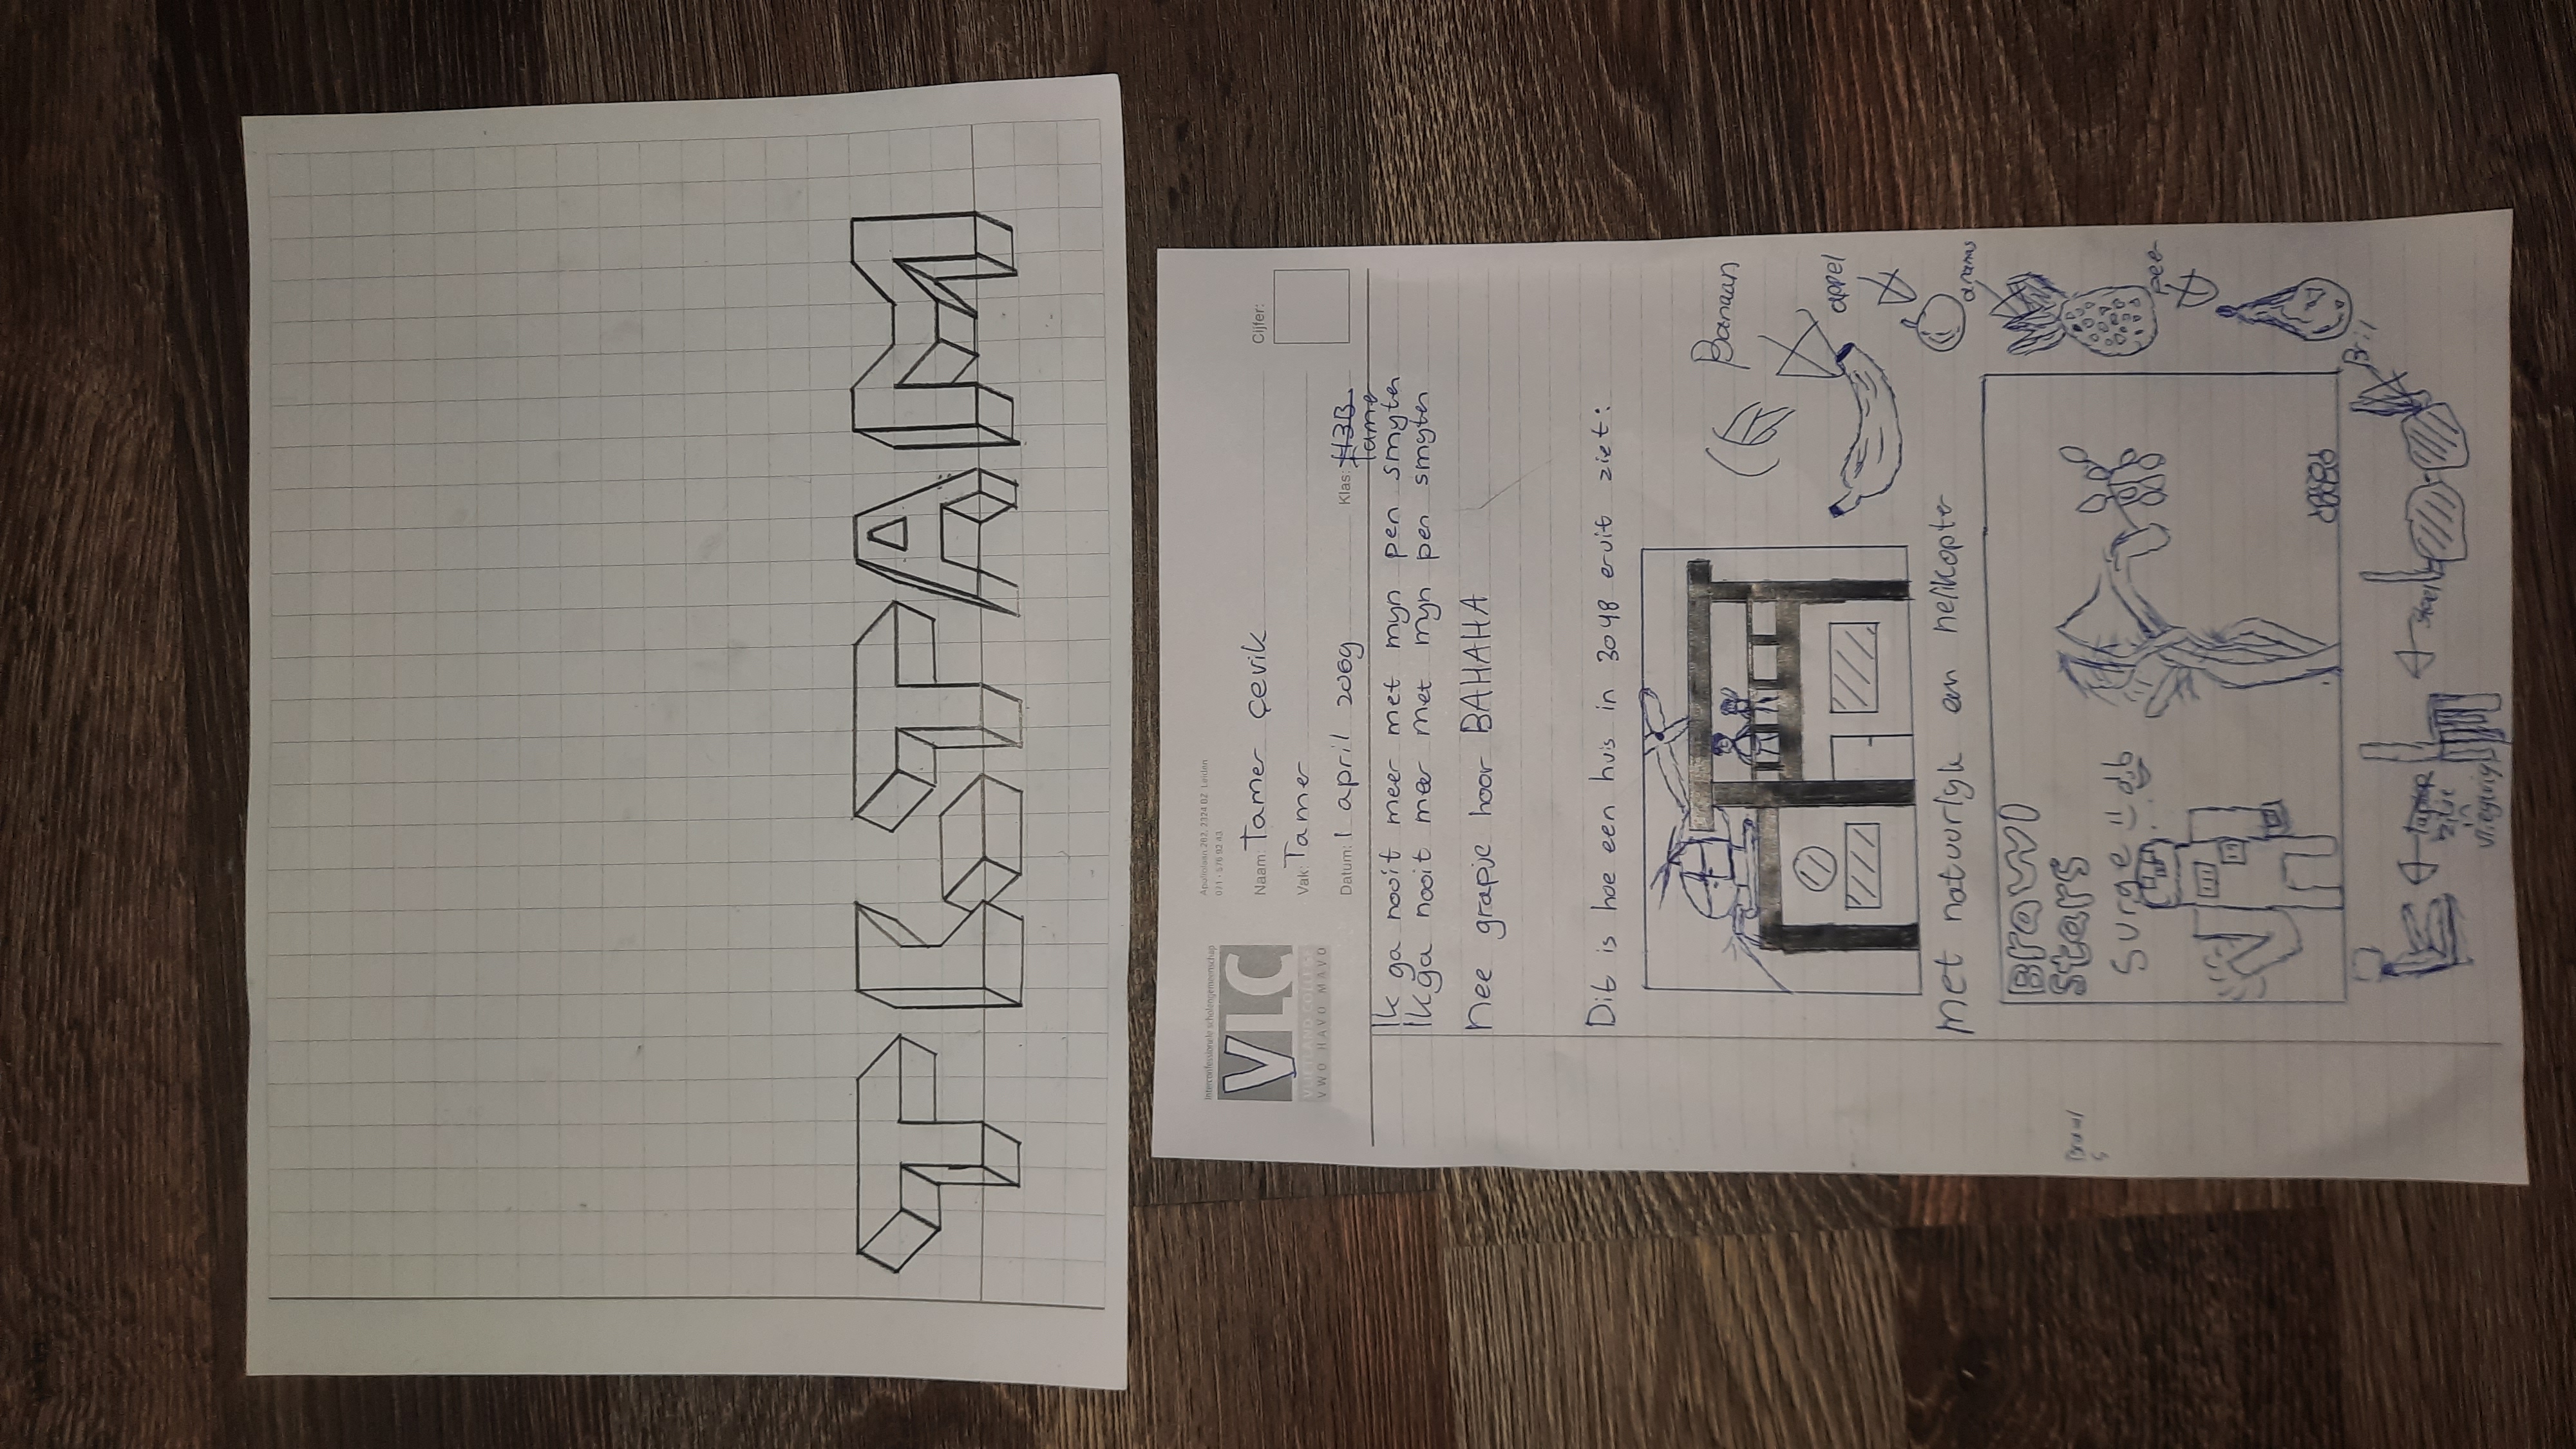 TLSTAM
Interconfessionele scholengemeenschap
VLC
VLIETLAND COLLEGE
VWO HAVO MAVO
Apollolaan 262, 2324 BZ Leiden
Naam: Tamer çevik
Cijfer:
Vak: Tamer
Datum: 1 april 2069
Klas: H3B
Tamer
Ik ga nooit meer met mijn pen smijten
Ik ga nooit meer met mijn pen smijten
Nee grapje hoor BAHAHA
Dit is hoe een huis in 3048 eruit ziet:
Banaan
appel
Met natuurlijk een helikopter
ananas
Brawl
Stars
Surge
peer
Bril
stoel
vliegtuig